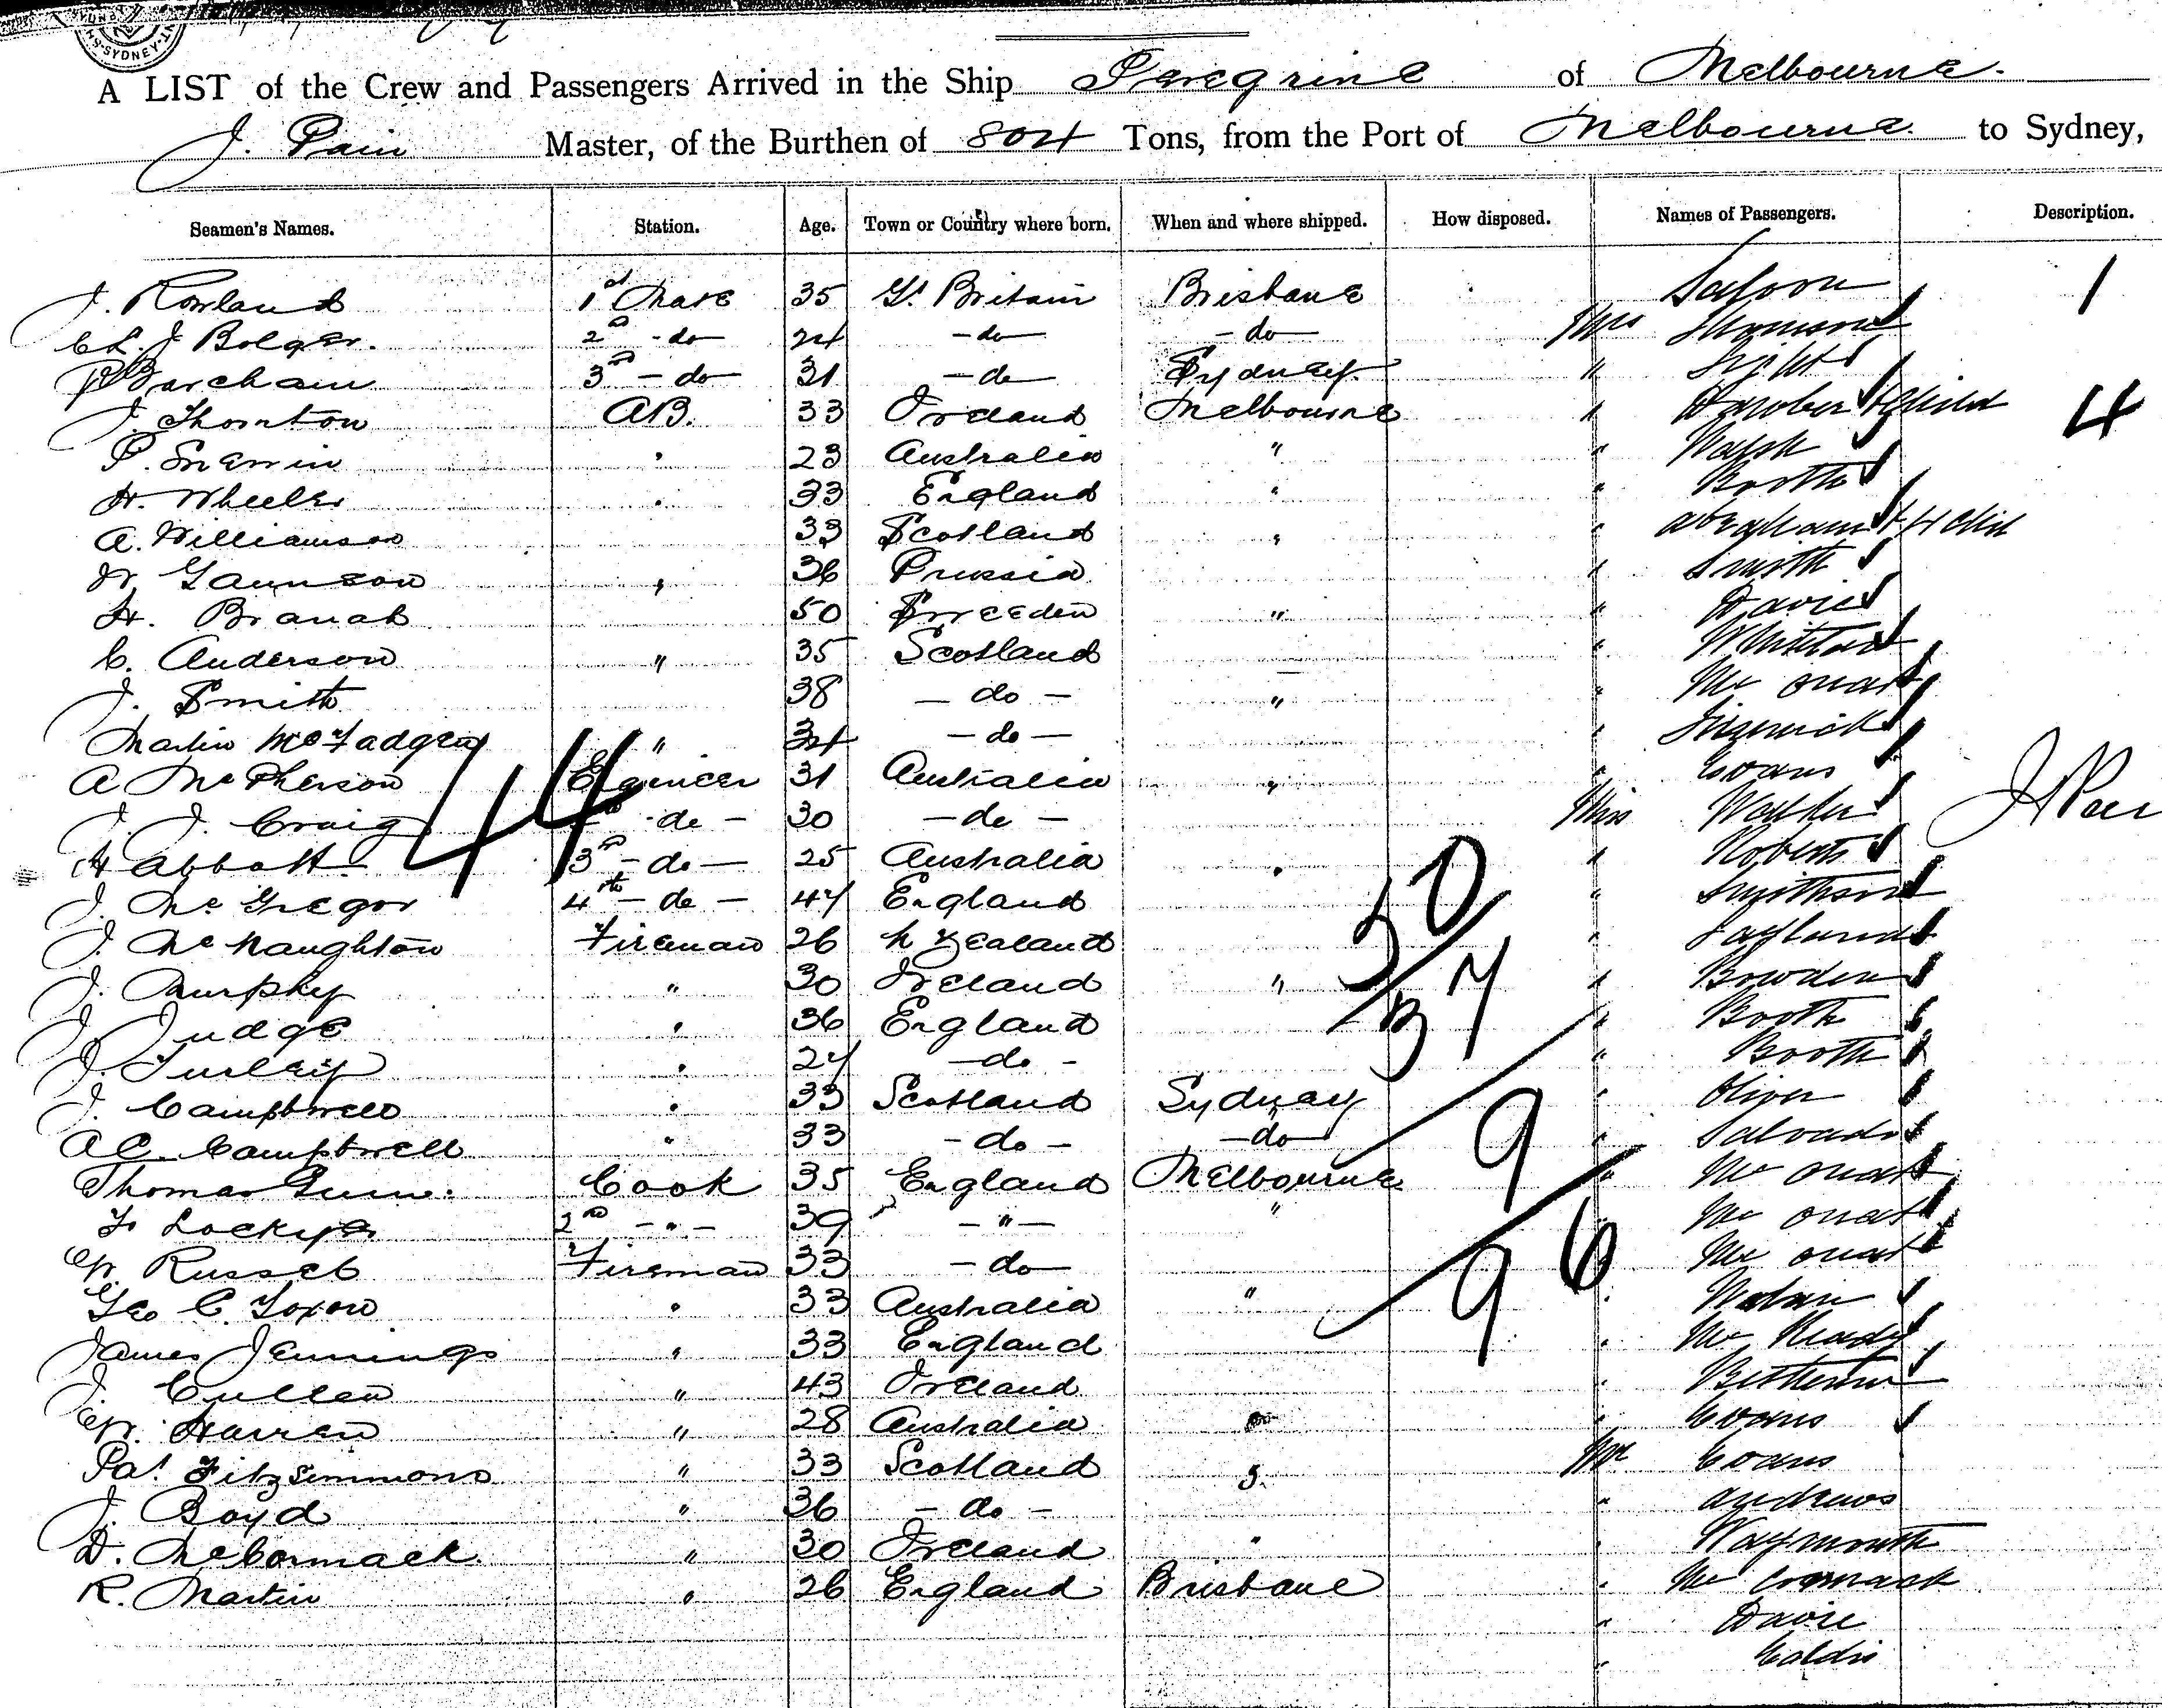 SYDNEY
A LIST of the Crew and Passengers Arrived in the Ship Peregrine of Melbourne.
J. Pain Master, of the Burthen of 804 Tons, from the Port of Melbourne. to Sydney,
Seamen's Names. Station. Age. Town or Country where born. When and where shipped. How disposed. Names of Passengers. Description.
J. Rowland 1st Mate 35 Gt Britain Brisbane Saloon 1
J. Bolger. 2nd - do - 24 - do - - do - Mrs Thomson
3rd - do - 31 - do - Sydney " Light
J. Thornton AB. 33 Ireland Melbourne " + Child 4
P. 23 Australia " " Walsh
H. Wheeler 33 England " " Booth
A. Williamson 33 Scotland " " Abraham + 4 Child
36 Prussia " Smith
H. 50 Sweeden " " Davies
C. Anderson " 35 Scotland "
J. Smith 38 - do - " " Mc
Martin McFadgen " 34 - do - "
A McPherson Engineer 31 Australia " " Evans
J. J. Craig 2nd - do - 30 - do - Miss Walker
H Abbott 3rd - do - 25 Australia " " Roberts
J. McGregor 4th - do - 47 England "
J. McNaughton Fireman 26 N Zealand "
J. Murphy " 30 Ireland " " Bowden
J. Judge " 36 England " Booth
J. " 27 - do - " Booth
J. Campbwell " 33 Scotland Sydney " Oliver
A C. Campbwell " 33 - do - - do - "
Thomas Cook 35 England Melbourne " Mc
Lockyer 2nd - " - 39 - " - " " Mc
W. Russel Fireman 33 - do - " Mc
Geo C. " 33 Australia " "
James Jennings " 33 England " Mc
J. Cullen " 43 Ireland "
W. " 28 Australia " Evans
Pat Fitzsimmons " 33 Scotland Mr Evans
J. Boyd " 36 - do - " Andrews
D. McCormack. " 30 Ireland " " Waymouth
R. Martin " 26 England Brisbane " McCormack
" Davie
"
44
50
37
9
96